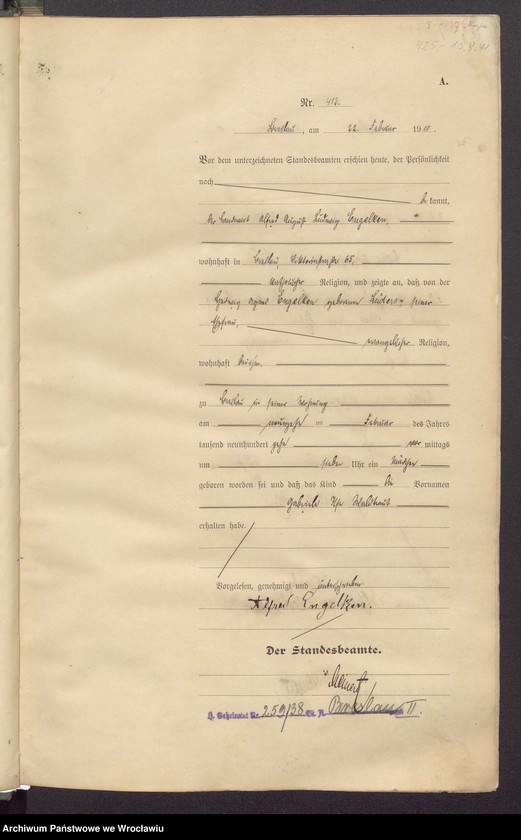 A.
Nr. 413.
Breslau, am 22. Februar 1910.
Vor dem unterzeichneten Standesbeamten erschien heute, der Persönlichkeit
nach
bekannt,
der Landwirt Alfred August Ludwig Engelken,
wohnhaft in Breslau, Viktoriastraße 65,
katholischer Religion, und zeigte an, daß von der
Hedwig Agnes Engelken geborenen Lüders, seiner
Ehefrau,
evangelischer Religion,
wohnhaft bei ihm,
zu Breslau in seiner Wohnung
am neunzehnten Februar des Jahres
tausend neunhundert zehn vormittags
um sieben Uhr ein Mädchen
geboren worden sei und daß das Kind die Vornamen
Gabriele
erhalten habe.
Vorgelesen, genehmigt und unterschrieben
Alfred Engelken.
Der Standesbeamte.
H. Geheiratet Nr. 259/38 St. A. Breslau II.
Archiwum Państwowe we Wrocławiu